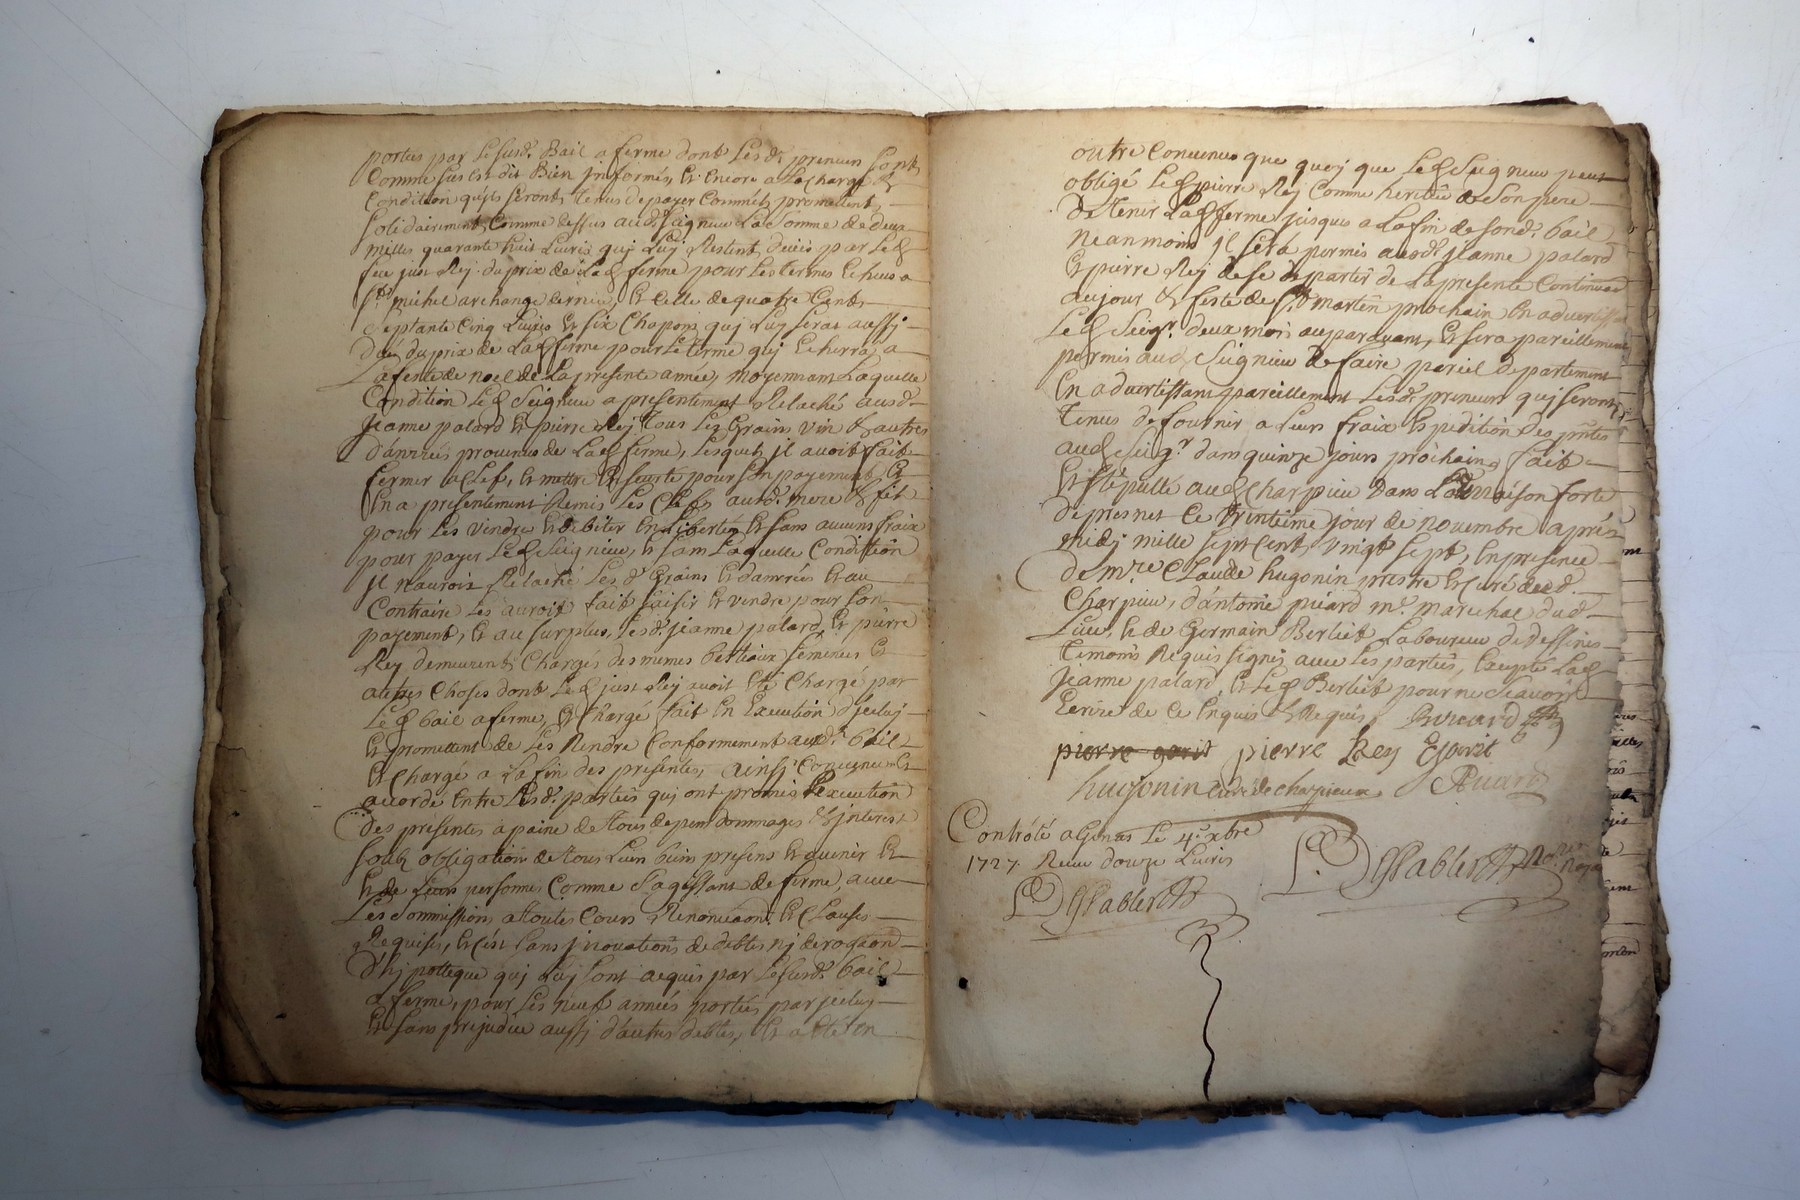 portées par le susd. Bail a ferme dont lesd. preneurs sont
Comme sus est dit Bien jnformés, et encore a la charge &
Condition qu'jls seront tenus de payer Comme ils promettent
solidairement Comme dessus aud. seigneur la somme de deux
milles quarante huit livres quj luy restent deües par led.
feu just Rey du prix de lad. ferme pour les termes echeus a
st. michel archange dernier, et celle de quatre Cents
septante Cinq livres et six Chapons quj luy serat aussj
deü du prix de lad. ferme pour le terme quj echerra a
la feste de noel de la presente année, moyennant laquelle
Condition led. seigneur a presentement relaché ausd.
jeanne palard et pierre Rey tous les grains vin & autres
danrées provenus de lad. ferme, lesquels jl avoit fait
fermer a clef, et mettre en seurté pour son payement, et
en a presentement remis les clefs ausd. mere & fils
pour les vendre et debiter en liberté et sans aucuns fraix
pour payer led. seigneur, et sans laquelle Condition
jl n'auroit relaché lesd. grains et danrées et au
Contraire les auroit fait saisir et vendre pour son
payement, et au surplus, lesd. jeanne palard et pierre
Rey demeurent Chargés des memes bestiaux semences et
autres choses dont led. just Rey avoit été Chargé par
led. bail a ferme, et Chargé fait en execution d'jceluj
et promettent de les Rendre Conformement ausd. bail
et Chargé a la fin des presentes, ainsj convenu et
accordé entre lesd. parties quj ont promis l'execution
des presentes a paine de tous depens dommages & jnterest
soub obligation de tous leurs biens presens et avenir et
et de leurs personnes Comme s'agissant de ferme, avec
les soummissions a toutes Cours Renonciaons et Clauses
Requises, et c'est sans jnovations de debtes nj derogaon
d'hjpotteque quj luj sont acquis par le susd. bail
a ferme, pour les neuf années portés par jceluy
et sans prejudice aussj d'autres debtes, et a eté en
outre convenu que quoj que led. seigneur peut
obligé led. pierre Rey Comme heritier de son pere
de tenir lad. ferme jusques a la fin de sond. bail
neanmoins jl sera permis ausd. jeanne palard
et pierre Rej de se departir de la presente Continuaon
au jour & feste de st. martin prochain en advertissant
led. seigr. deux mois auparavant, et sera pareillement
permis aud. seigneur de faire pareil departement
en advertissant pareillement lesd. preneurs quj seront
tenus de fournir a leurs fraix expedition des pntes
aud. seigr. dans quinze jours prochains, fait
et stepullé aud. Charpieu dans la maison forte
de presnet ce trintiéme jour de novembre aprés
midj mille sept cent vingt sept, en presence
de mre Claude hugonin prestre et curé dud.
Charpieu, d'antoine piéard me. marechal dud.
lieu, et de Germain Berliet laboureur de dessines
temoins Requis signés avec les parties, excepté lad.
jeanne palard, et led. Berliet pour ne sçavoir
Ecrire de ce enquis & Requis,
pierre pierre Rey
hugonin curé de charpieux
Contrôlé a Genas le 4e. xbre
1727. Receu douze livres